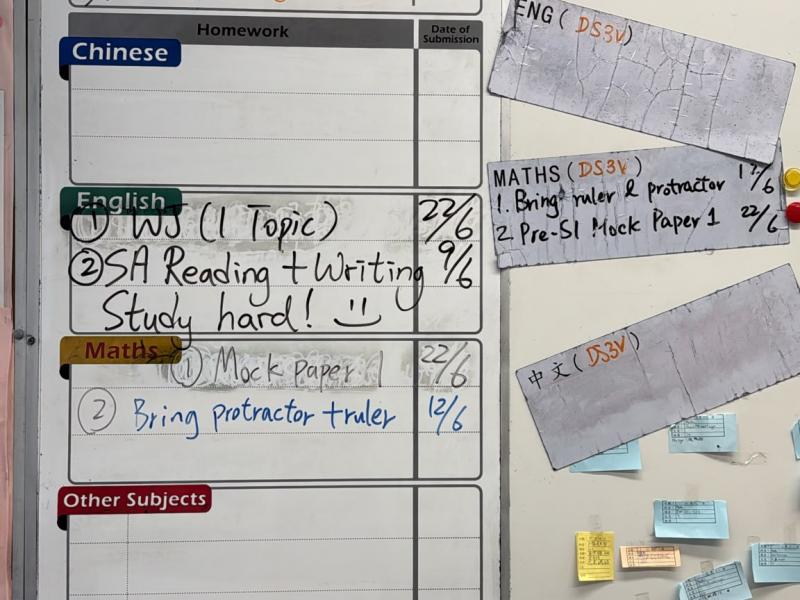 Homework
Date of Submission
Chinese
English
① WJ (1 Topic) 22/6
② SA Reading + Writing 9/6
Study hard!
Maths
① Mock Paper 1 22/6
② Bring protractor + ruler 12/6
Other Subjects
ENG (DS3V)
MATHS (DS3V)
1. Bring ruler & protractor 12/6
2 Pre-S1 Mock Paper 1 22/6
中文 (DS3V)